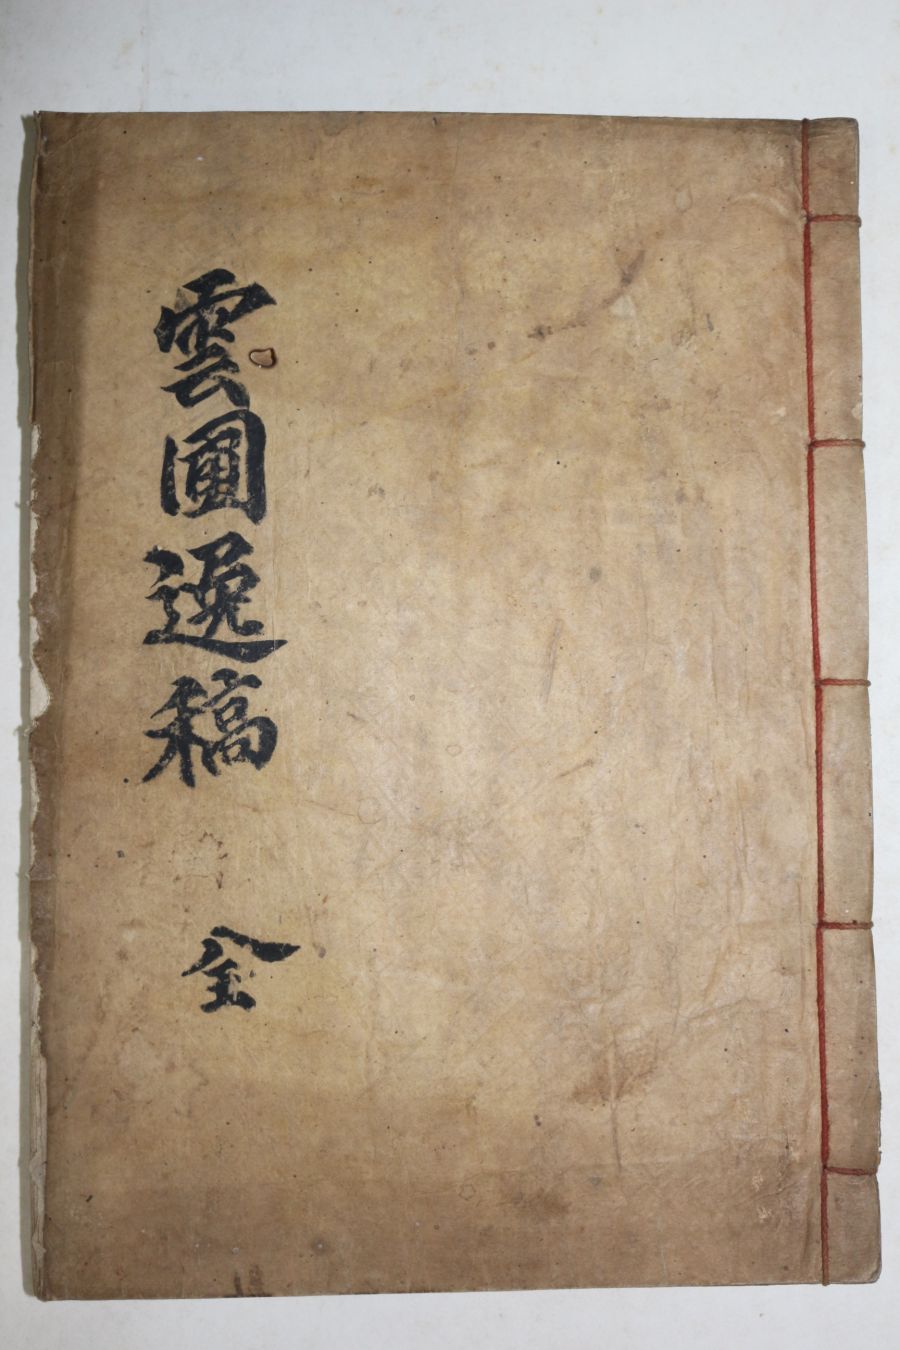 雲圃逸稿 全